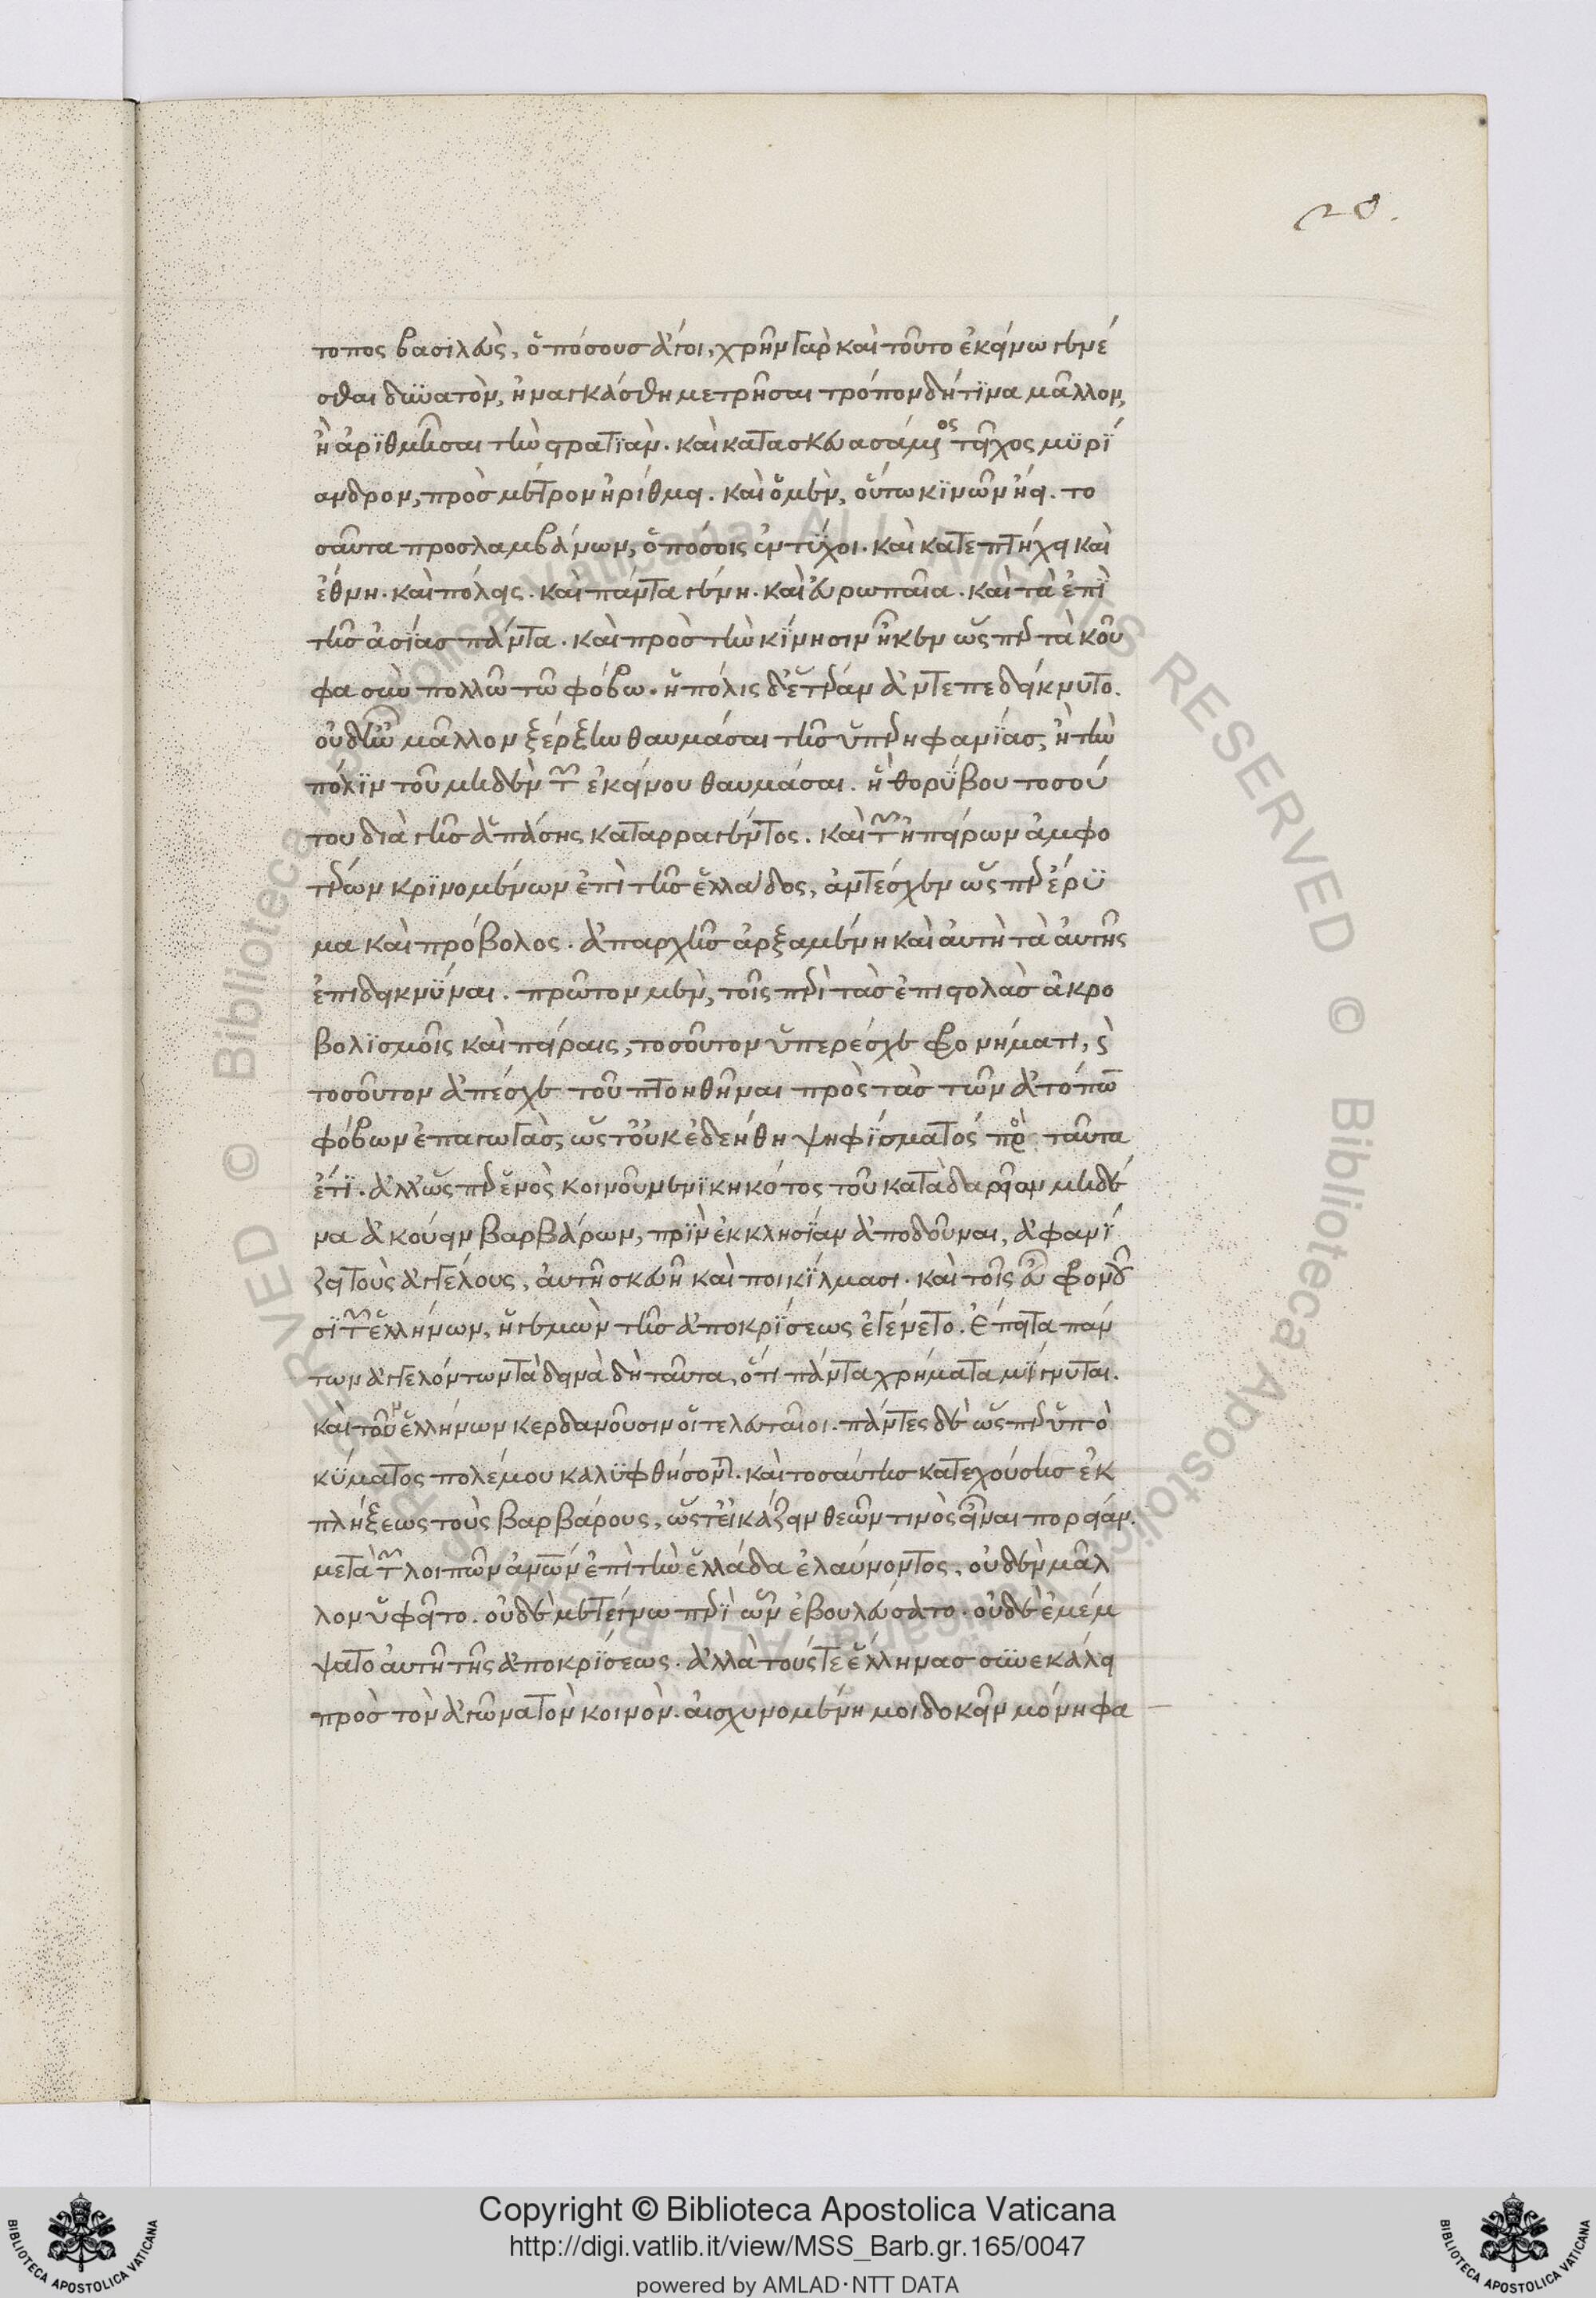 20.
τοπος βασιλεὺς, ὁπόσους ἄγοι, χρῆν γὰρ καὶ τοῦτο ἐκείνω γενέ
σθαι δυνατὸν, ἠναγκάσθη μετρῆσαι τρόπον δή τινα μᾶλλον,
ἢ ἀριθμῆσαι τὴν στρατιὰν. καὶ κατασκευασάμενος τεῖχος μυρί
ανδρον, πρὸς μέτρον ἠρίθμει. καὶ ὁ μὲν, οὕτω κινῶν ἤει. το
σαῦτα προσλαμβάνων, ὁπόσοις ἐντύχοι. καὶ κατεπτήχει καὶ
ἔθνη. καὶ πόλεις. καὶ πάντα γένη. καὶ εὐρωπαῖα. καὶ τὰ ἐπὶ
τῆς ἀσίας πάντα. καὶ πρὸς τὴν κίνησιν ἧκεν ὥσπερ τὰ κοῦ
φα σὺν πολλῶ τῶ φόβω. ἡ πόλις δ' ἑτέραν ἀντεπεδείκνυτο.
οὐδὲν μᾶλλον ξέρξην θαυμάσαι τῆς ὑπερηφανίας, ἢ τὴν
πόλιν τοῦ μηδὲν τῶν ἐκείνου θαυμάσαι. ἣ θορύβου τοσού
του διὰ γῆς ἁπάσης καταρραγέντος. καὶ τῶν ἠπείρων ἀμφο
τέρων κρινομένων ἐπὶ τῆς ἑλλάδος, ἀντέσχεν ὥσπερ ἔρυ
μα καὶ πρόβολος. ἀπαρχῆς ἀρξαμένη καὶ αὐτὴ τὰ αὑτῆς
ἐπιδεικνύναι. πρῶτον μὲν, τοῖς περὶ τὰς ἐπιστολὰς ἀκρο
βολισμοῖς καὶ πείραις, τοσοῦτον ὑπερέσχε φρονήματι, καὶ
τοσοῦτον ἀπέσχε τοῦ πτοηθῆναι πρὸς τὰς τῶν ἀτόπων
φόβων ἐπαγωγὰς, ὥστ' οὐκ ἐδεήθη ψηφίσματος πρὸς ταῦτα
ἔτι. ἀλλ' ὥσπερ ἑνὸς κοινοῦ νενικηκότος τοῦ κατὰ δαρεῖον μηδέ
να ἀκούειν βαρβάρων, πρὶν ἐκκλησίαν ἀποδοῦναι, ἀφανί
ζει τοὺς ἀγγέλους, αὐτῆ σκευῆ καὶ ποικίλμασι. καὶ τοῖς εὖ φρονοῦ
σι τῶν ἑλλήνων, ἡγεμὼν τῆς ἀποκρίσεως ἐγένετο. ἔπειτα πάν
των ἀγγελόντων τὰ δεινὰ δὴ ταῦτα, ὅτι πάντα χρήματα μίγνυται.
καὶ τοῦν ἑλλήνων κερδανοῦσιν οἱ τελευταῖοι. πάντες δὲ ὥσπερ ὑπὸ
κύματος πολέμου καλυφθήσονται. καὶ τοσαύτης κατεχούσης ἐκ
πλήξεως τοὺς βαρβάρους, ὥστ' εἰκάζειν θεῶν τινὸς εἶναι πορείαν.
μετὰ τῶν λοιπῶν ἀνθρώπων ἐπὶ τὴν ἑλλάδα ἐλαύνοντος, οὐδὲν μᾶλ
λον ὑφεῖτο. οὐδὲ μετείνω περὶ ὧν ἐβουλεύσατο. οὐδὲ ἐμέμ
ψατο αὑτῆ τῆς ἀποκρίσεως. ἀλλὰ τούς τε ἕλληνας συνεκάλει
πρὸς τὸν ἀγῶνα τὸν κοινὸν. αἰσχυνομένη μοι δοκεῖν μόνη φα
Copyright © Biblioteca Apostolica Vaticana
http://digi.vatlib.it/view/MSS_Barb.gr.165/0047
powered by AMLAD·NTT DATA